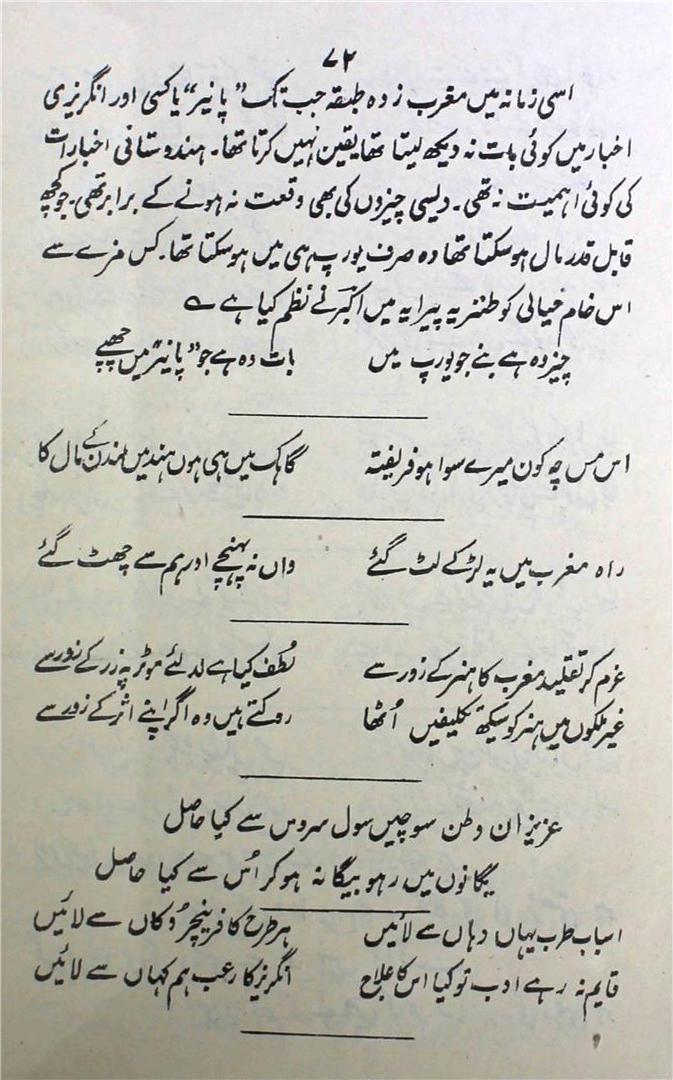 ۷۲
اسی زمانہ میں مغرب زدہ طبقہ جب تک "پانیر" یا کسی اور انگریزی
اخبار میں کوئی بات نہ دیکھ لیتا تھا یقین نہیں کرتا تھا۔ ہندوستانی اخبارات
کی کوئی اہمیت نہ تھی۔ دیسی چیزوں کی بھی وقعت نہ ہونے کے برابر تھی۔ جو کچھ
قابل قدر مال ہو سکتا تھا وہ صرف یورپ ہی میں ہو سکتا تھا۔ کس مزے سے
اس خام خیالی کو طنزیہ پیرایہ میں اکبرؔ نے نظم کیا ہے ؎
چیز وہ ہے بنے جو یورپ میں بات وہ ہے جو "پانیر" میں چھپے
اس مس پہ کون میرے سوا ہو فریفتہ گاہک میں ہی ہوں ہند میں لندن کے مال کا
راہ مغرب میں یہ لڑکے لٹ گئے واں نہ پہنچے اور ہم سے چھٹ گئے
عزم کر تقلید مغرب کا ہنر کے زور سے لطف کیا ہے لد لئے موٹر پہ زر کے زور سے
غیر ملکوں میں ہنر کو سیکھ تکلیفیں اُٹھا روکتے ہیں وہ اگر اپنے اثر کے زور سے
عزیزان وطن سوچیں سول سروس سے کیا حاصل
یگانوں میں رہو بیگانہ ہو کر اُس سے کیا حاصل
اسباب طرب یہاں وہاں سے لائیں ہر طرح کا فرنیچر دُکاں سے لائیں
قایم نہ رہے ادب تو کیا اس کا علاج انگریز کا رعب ہم کہاں سے لائیں